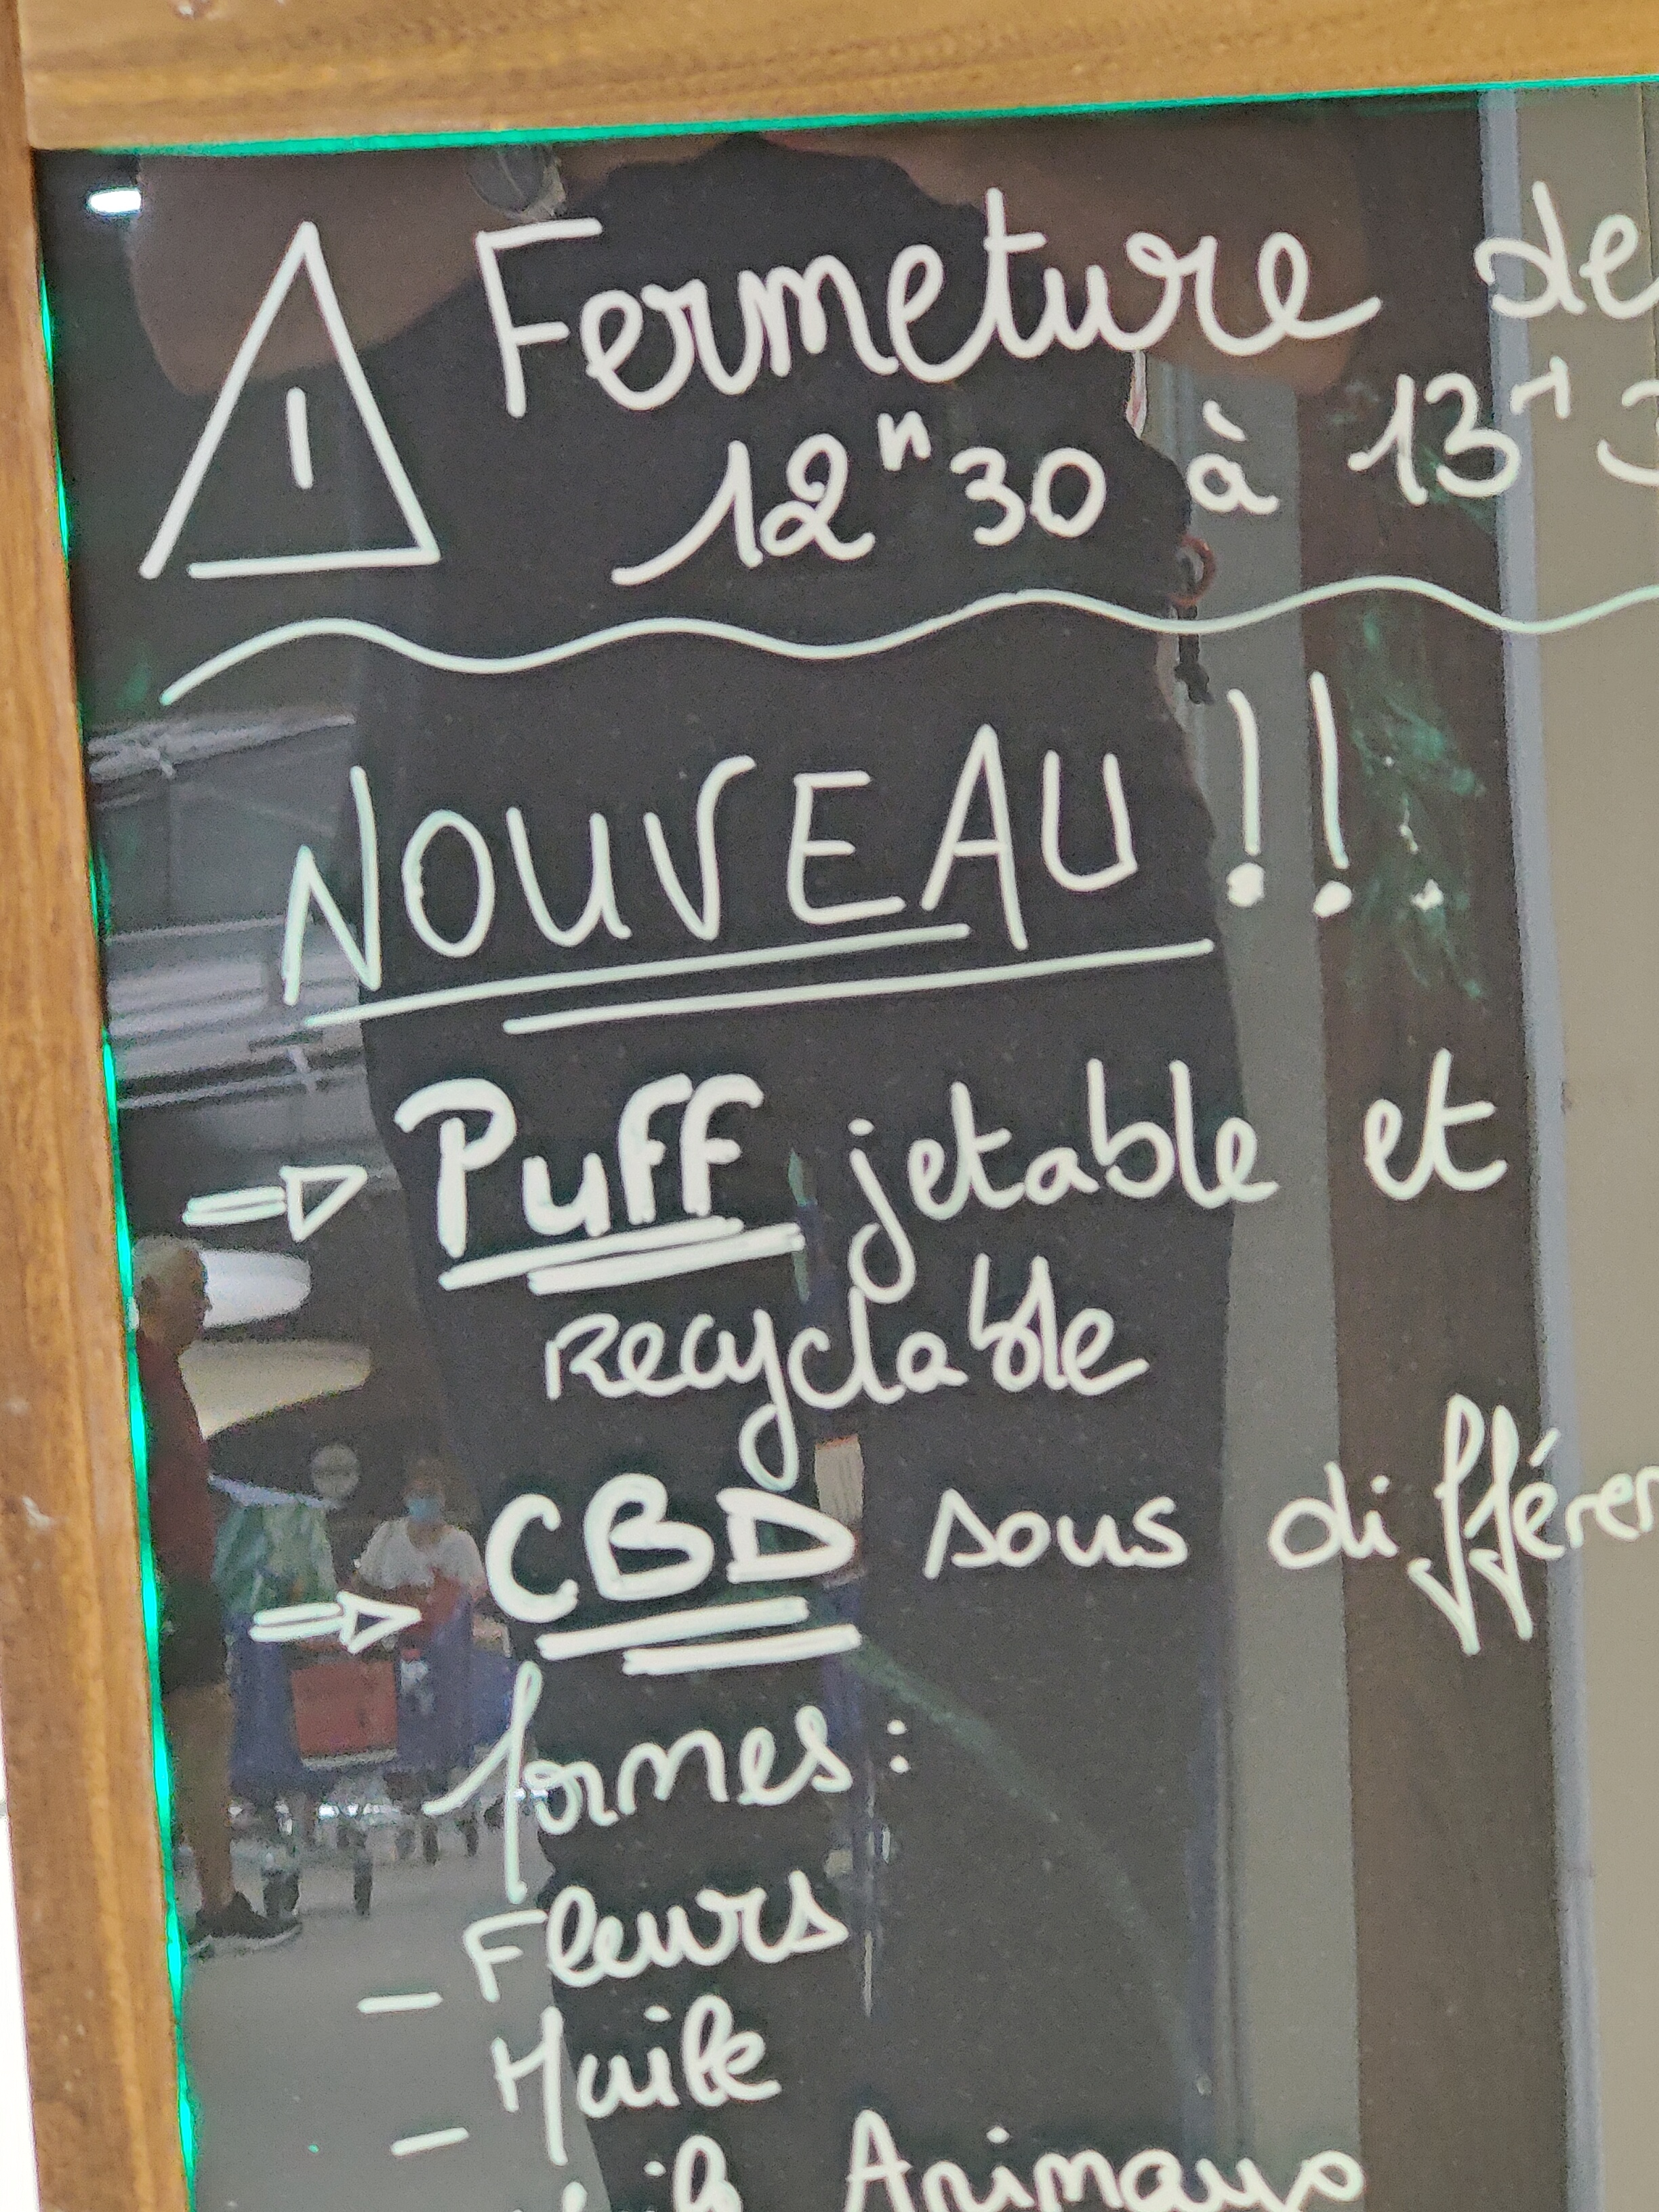 ! Fermeture de
12h30 à 13h3
NOUVEAU !!
⇒ Puff jetable et
recyclable
⇒ CBD sous différen
formes :
- Fleurs
- Huile
Animaux